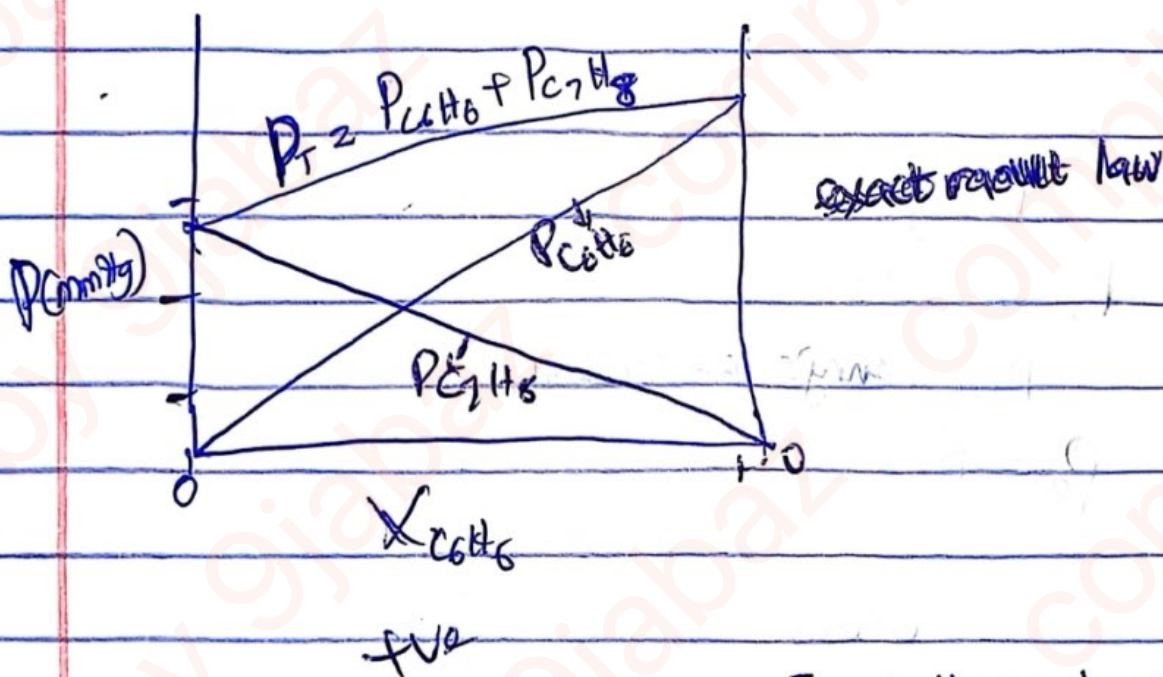 P_T = P_C6H6 + P_C7H8
P(mmHg)
P_C6H6
P_C7H8
0
1.0
X_C6H6
+ve